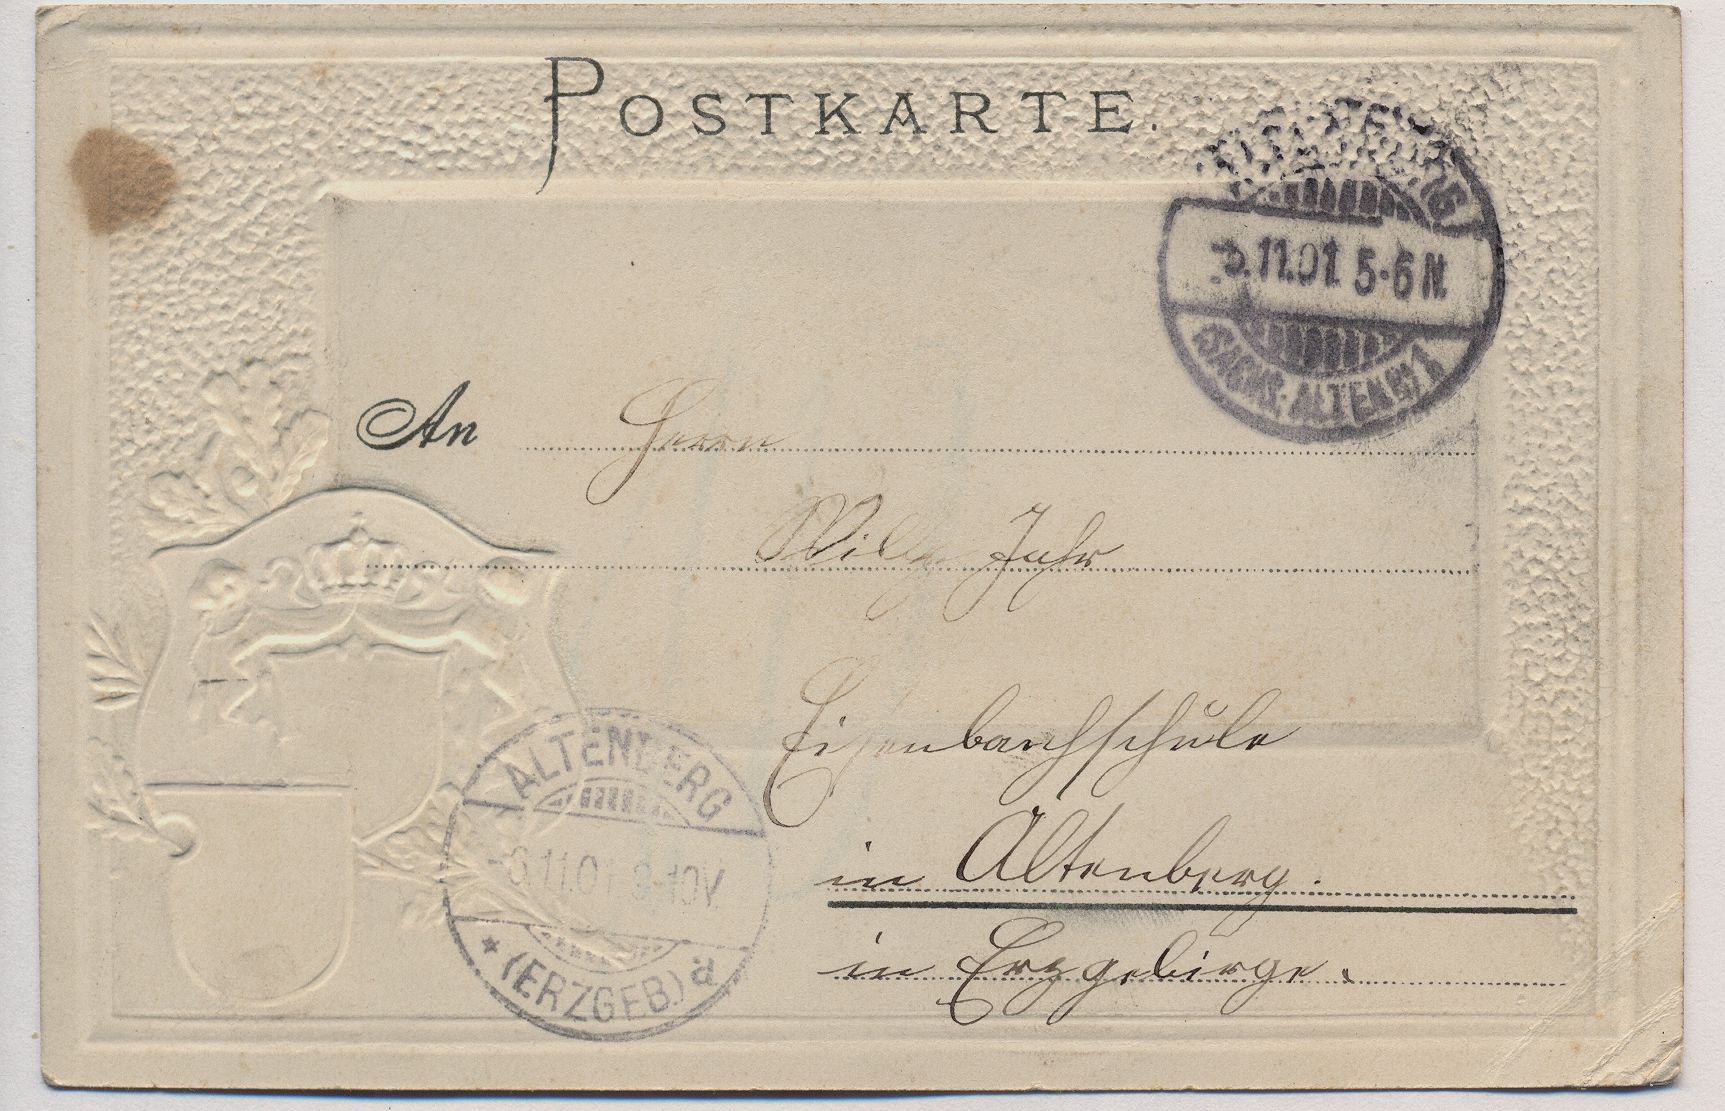 POSTKARTE.
5.11.01. 5-6 N.
(SACHS.-ALTENB.) 1
An Herrn
Willy Jahr
Eisenbachschule
in Altenberg.
in Erzgebirge.
ALTENBERG
-6.11.01 9-10V.
* (ERZGEB.) a